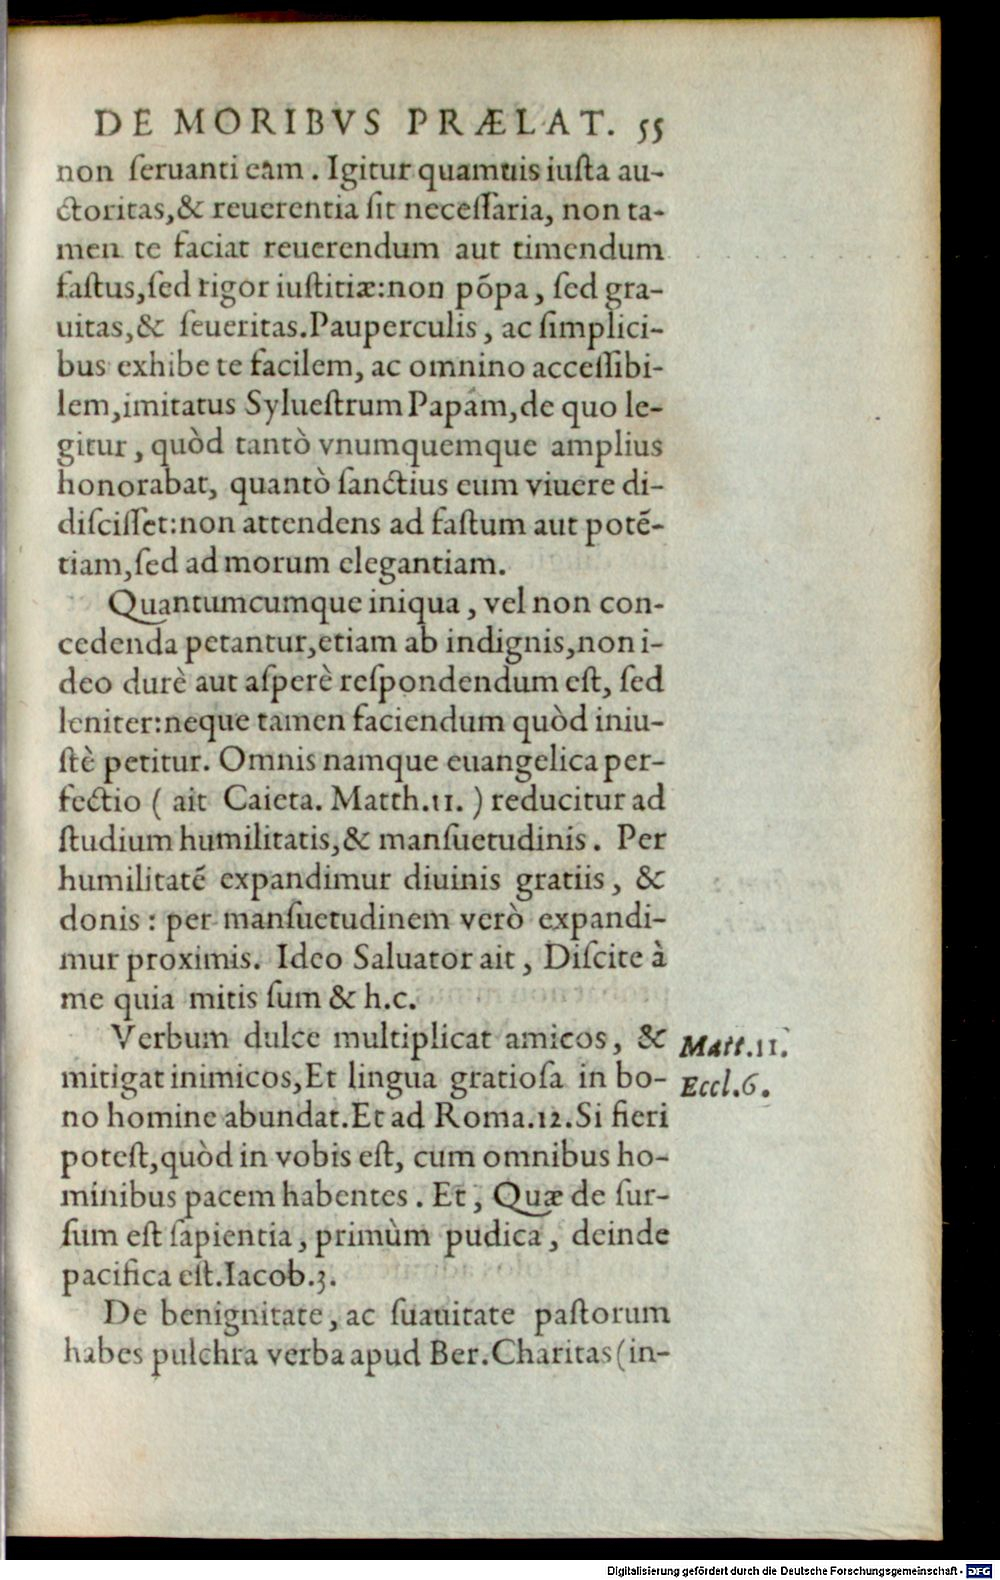 DE MORIBVS PRÆLAT. 55
non ſeruanti eam. Igitur quamuis iuſta au-
ctoritas,& reuerentia ſit neceſſaria, non ta-
men te faciat reuerendum aut timendum
faſtus,ſed rigor iuſtitiæ:non põpa, ſed gra-
uitas,& ſeueritas.Pauperculis, ac ſimplici-
bus exhibe te facilem, ac omnino acceſſibi-
lem,imitatus Sylueſtrum Papam,de quo le-
gitur, quòd tantò vnumquemque amplius
honorabat, quantò ſanctius eum viuere di-
diſciſſet:non attendens ad faſtum aut potẽ-
tiam,ſed ad morum elegantiam.
Quantumcumque iniqua, vel non con-
cedenda petantur,etiam ab indignis,non i-
deo durè aut aſperè reſpondendum eſt, ſed
leniter:neque tamen faciendum quòd iniu-
ſtè petitur. Omnis namque euangelica per-
fectio ( ait Caieta. Matth.11. ) reducitur ad
ſtudium humilitatis,& manſuetudinis. Per
humilitatẽ expandimur diuinis gratiis, &
donis : per manſuetudinem verò expandi-
mur proximis. Ideo Saluator ait, Diſcite à
me quia mitis ſum & h.c.
Verbum dulce multiplicat amicos, & Matt.11.
mitigat inimicos,Et lingua gratioſa in bo- Eccl.6.
no homine abundat.Et ad Roma.12.Si fieri
poteſt,quòd in vobis eſt, cum omnibus ho-
minibus pacem habentes. Et, Quæ de ſur-
ſum eſt ſapientia, primùm pudica, deinde
pacifica eſt.Iacob.3.
De benignitate, ac ſuauitate paſtorum
habes pulchra verba apud Ber.Charitas(in-
Digitalisierung gefördert durch die Deutsche Forschungsgemeinschaft - DFG